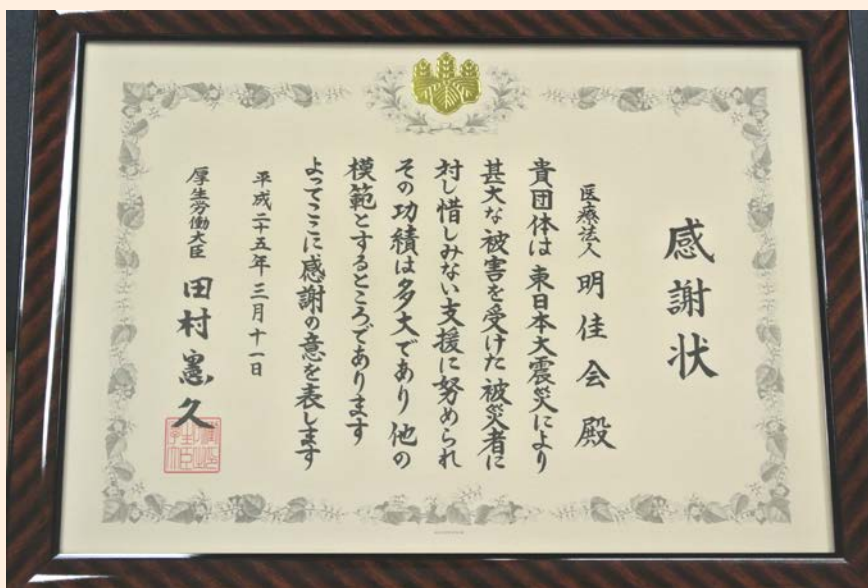 感謝状
医療法人 明佳会 殿
貴団体は東日本大震災により
甚大な被害を受けた被災者に
対し惜しみない支援に努められ
その功績は多大であり他の
模範とするところであります
よってここに感謝の意を表します
平成二十五年三月十一日
厚生労働大臣 田村憲久